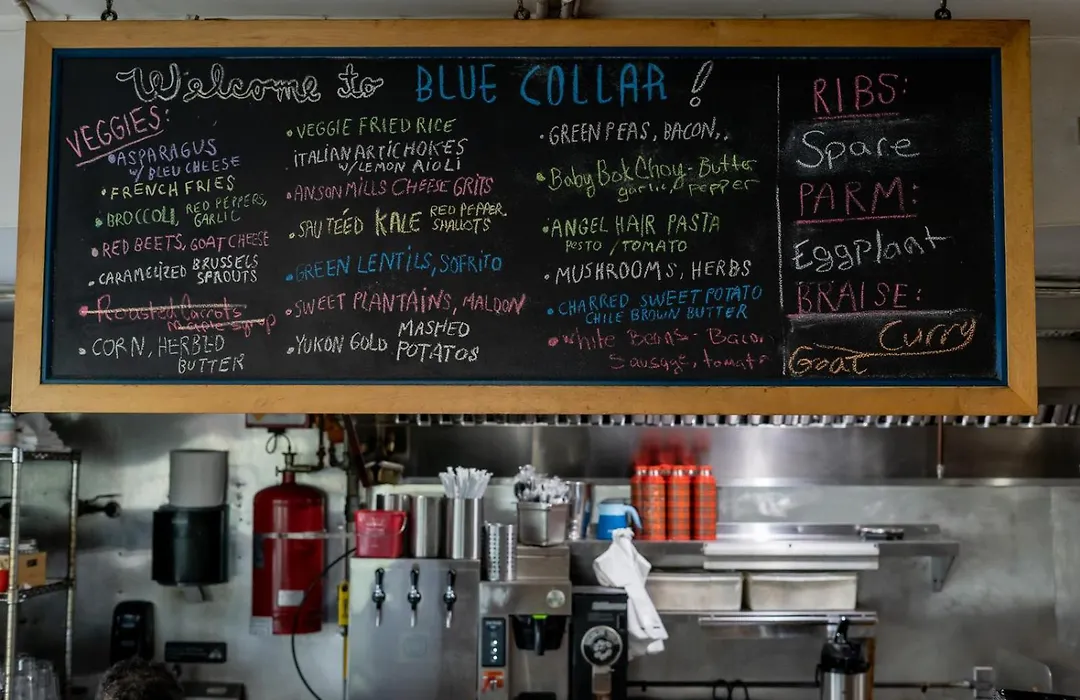 Welcome to BLUE COLLAR!
VEGGIES:
• ASPARAGUS
w/ BLEU CHEESE
• FRENCH FRIES
• BROCCOLI, RED PEPPERS,
GARLIC
• RED BEETS, GOAT CHEESE
• CARAMELIZED BRUSSELS
SPROUTS
• Roasted Carrots
Maple syrup
• CORN, HERBED
BUTTER
• VEGGIE FRIED RICE
ITALIAN ARTICHOKES
w/LEMON AIOLI
• ANSON MILLS CHEESE GRITS
• SAUTÉED KALE RED PEPPER,
SHALLOTS
• GREEN LENTILS, SOFRITO
• SWEET PLANTAINS, MALDON
• YUKON GOLD MASHED
POTATOS
• GREEN PEAS, BACON,.
• Baby Bok Choy - Butter
garlic, pepper
• ANGEL HAIR PASTA
PESTO / TOMATO
• MUSHROOMS, HERBS
• CHARRED SWEET POTATO
CHILE BROWN BUTTER
• White Beans - Bacon
Sausage, tomato
RIBS:
Spare
PARM:
Eggplant
BRAISE:
Curry
Goat